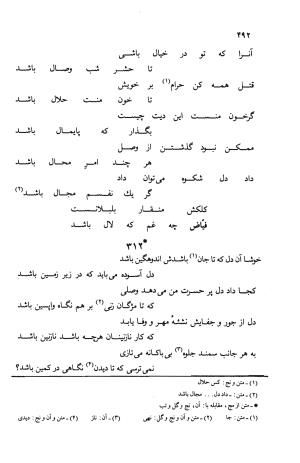 ۴۹۲
آنرا که تو در خیال باشی
تا حشر شب وصال باشد
قتل همه کن حرام(۱) بر خویش
تا خون منت حلال باشد
گرخون منست این دیت چیست
بگذار که پایمال باشد
ممکن نبود گذشتن از وصل
هر چند امر محال باشد
داد دل شکوه می‌توان داد
گر یك نفسم مجال باشد(۲)
کلکش منقار بلبلانست
فیاض چه غم که لال باشد
۳۱۲*
خوشا آن دل که تا جان(۱) باشدش اندوهگین باشد
دل آسوده می‌باید که در زیر زمین باشد
کجا داد دل پر حسرت من می‌دهد وصلی
که تا مژگان زنی(۲) بر هم نگاه واپسین باشد
دل از جور و جفایش نشئهٔ مهر و وفا یابد
که کار نازنینان هرچه باشد نازنین باشد
به هر جانب سمند جلوه(۳) بی‌باکانه می‌تازی
نمی‌ترسی که تا دیدن(۴) نگاهی در کمین باشد؟
(۱)- متن و نچ: کس حلال
(۲)- متن: - داد... مجال باشد
*- متن از مچ، مقابله با: آن، نچ و گل و تب
(۱)- متن: جا (۲)- متن و آن و نچ و گل: نهی (۳)- آن: ناز (۴)- متن و آن و نچ: دیدی